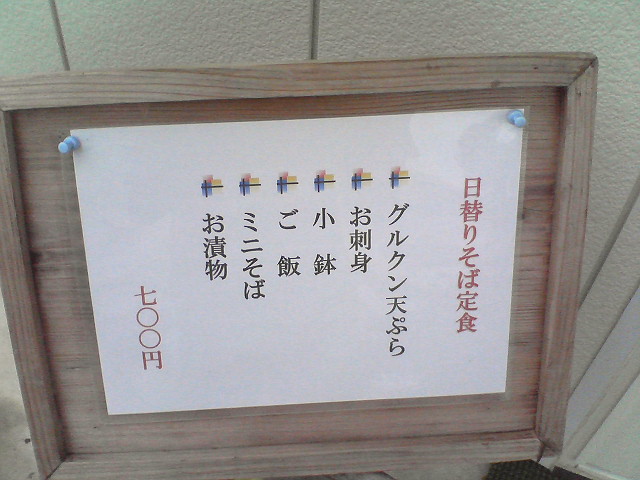 日替りそば定食
グルクン天ぷら
お刺身
小鉢
ご飯
ミニそば
お漬物
七〇〇円